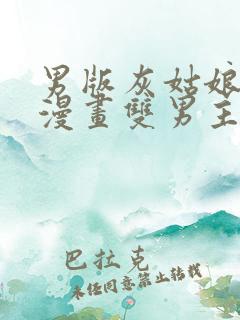 男版灰姑娘
漫畫雙男主
巴拉克
未经同意禁止转载